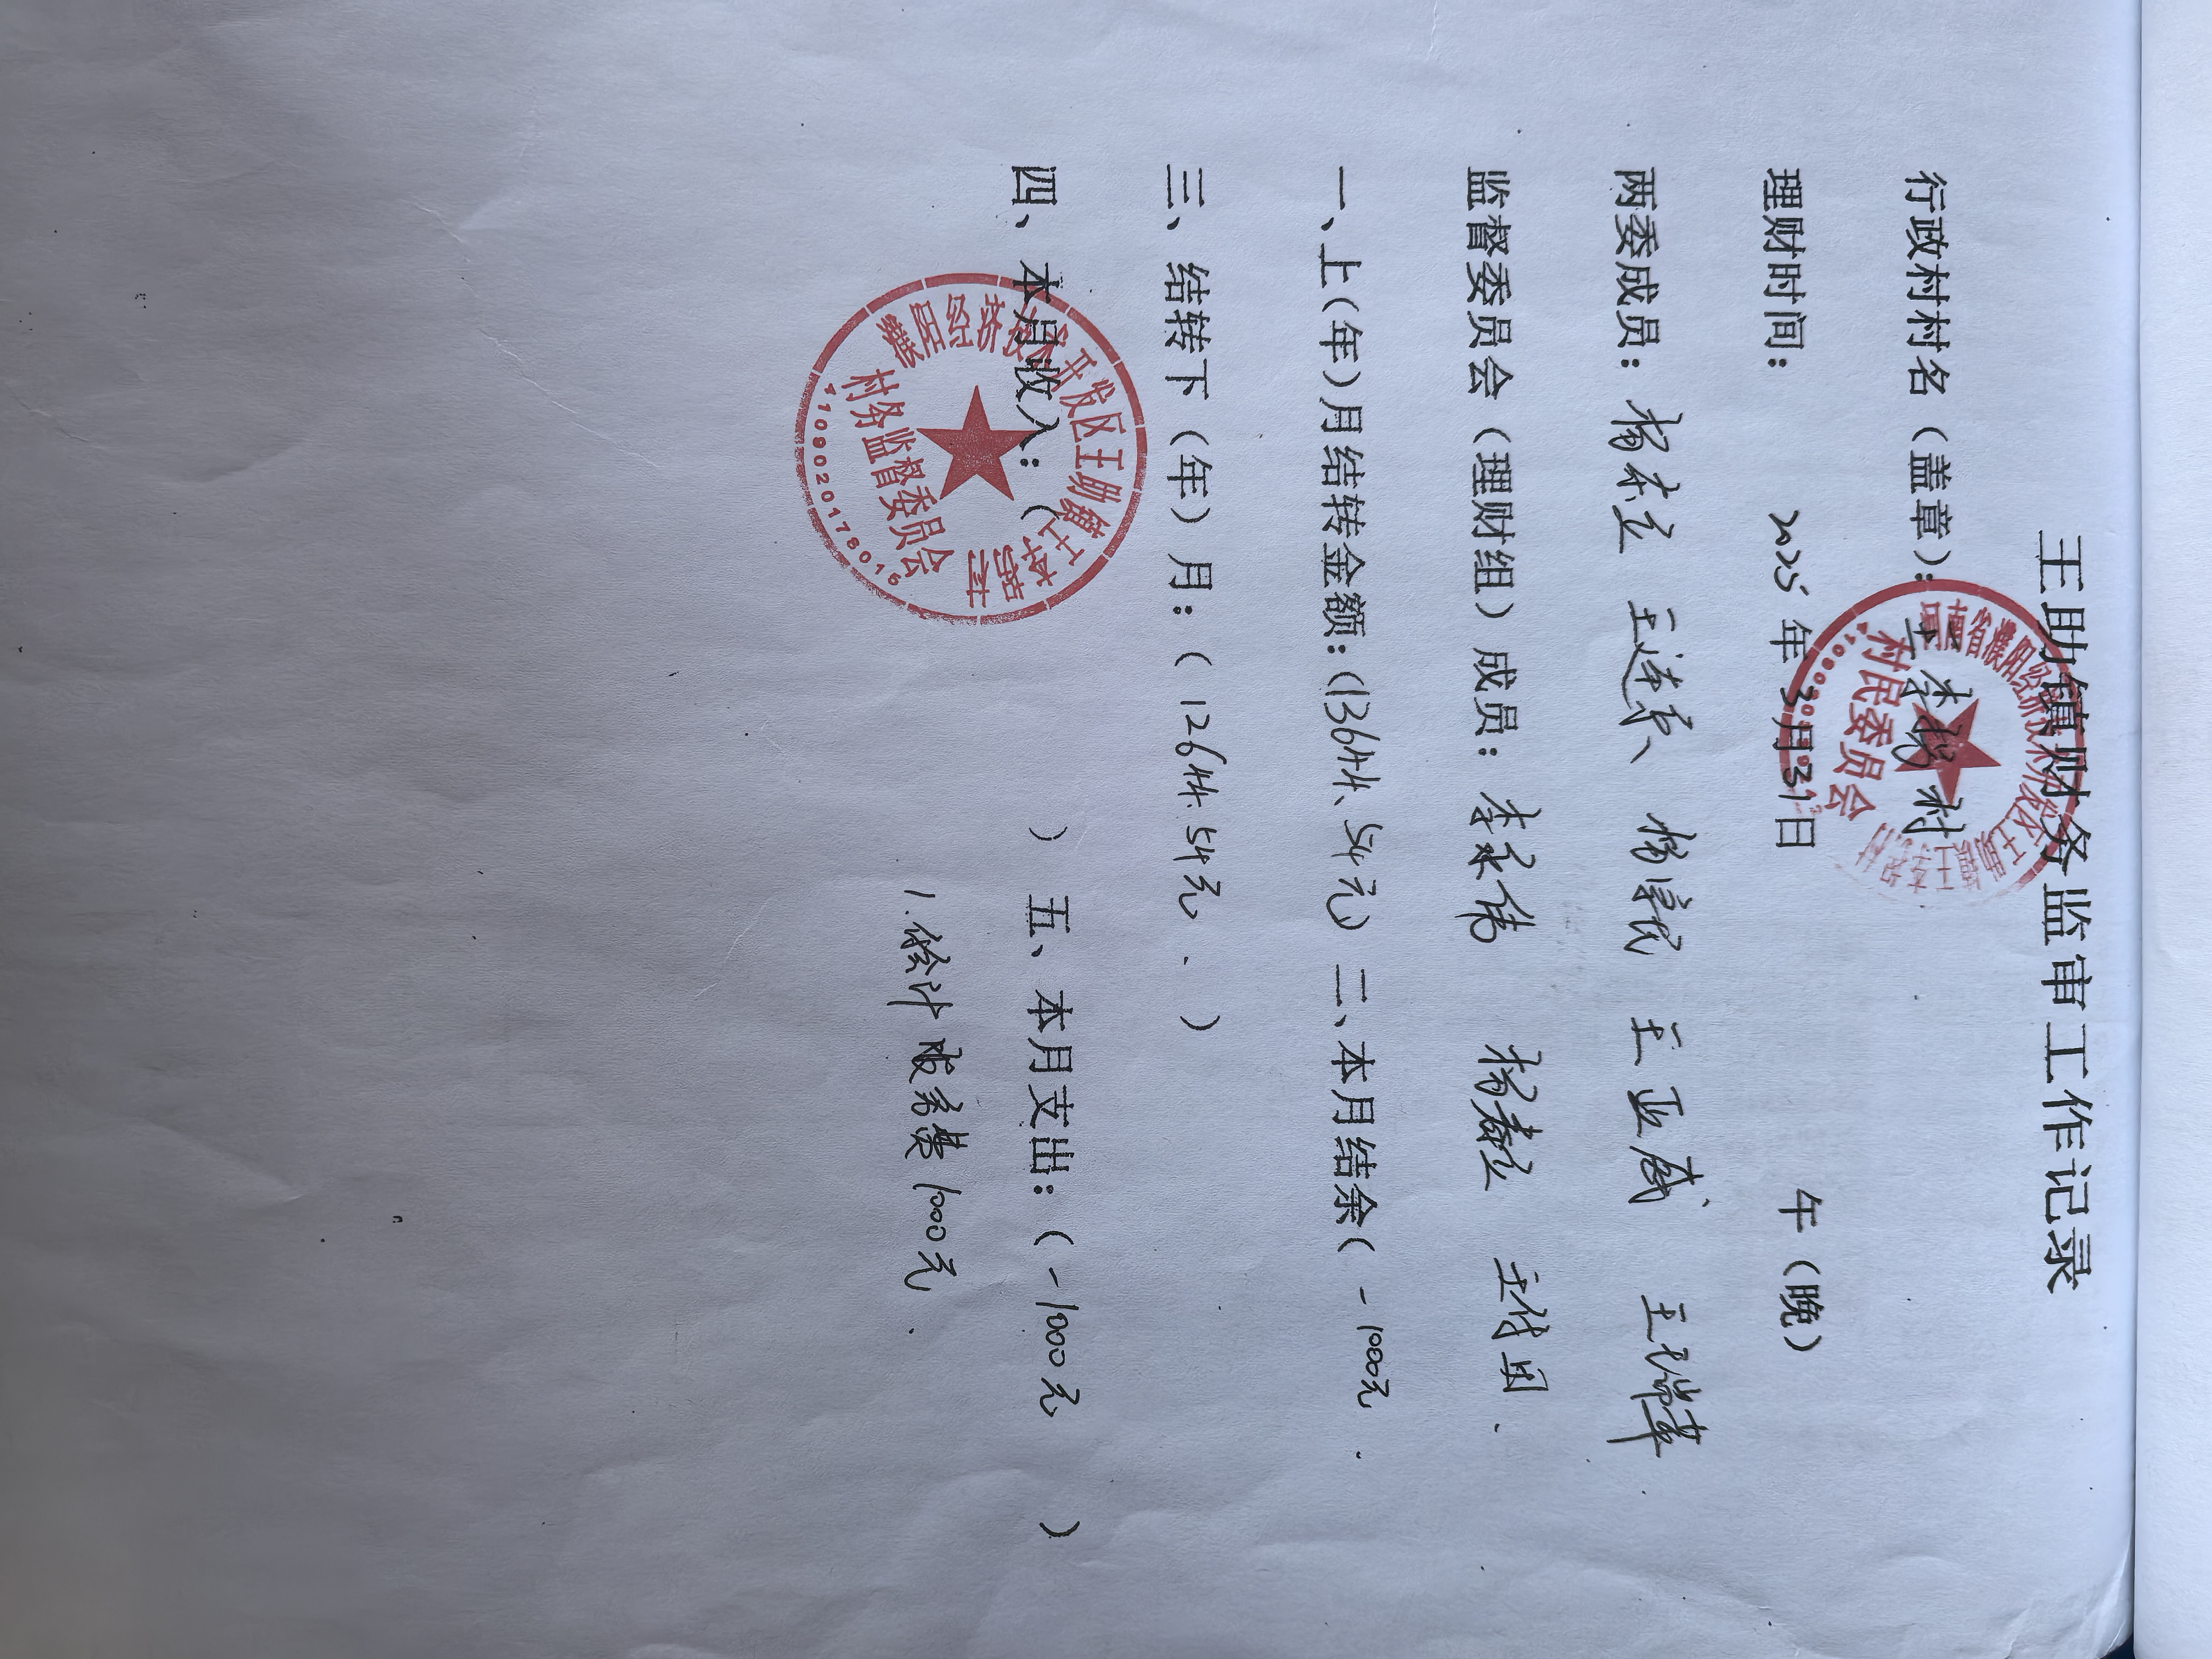 王助镇财务监审工作记录
行政村村名（盖章）：王李拐村
理财时间： 2025年3月31日 午（晚）
两委成员：杨林立 王连京、杨家民 王亚威、王瑞苹
监督委员会（理财组）成员：李永伟 杨春立 王付田.
一、上（年）月结转金额：（13644.54元）二、本月结余（-1000元.
三、结转下（年）月：（12644.54元. ）
四、本月收入：（ ）五、本月支出：（-1000元 ）
1.徐计 1000元.
村民委员会
濮阳经济技术开发区王助镇王李拐村
村务监督委员会